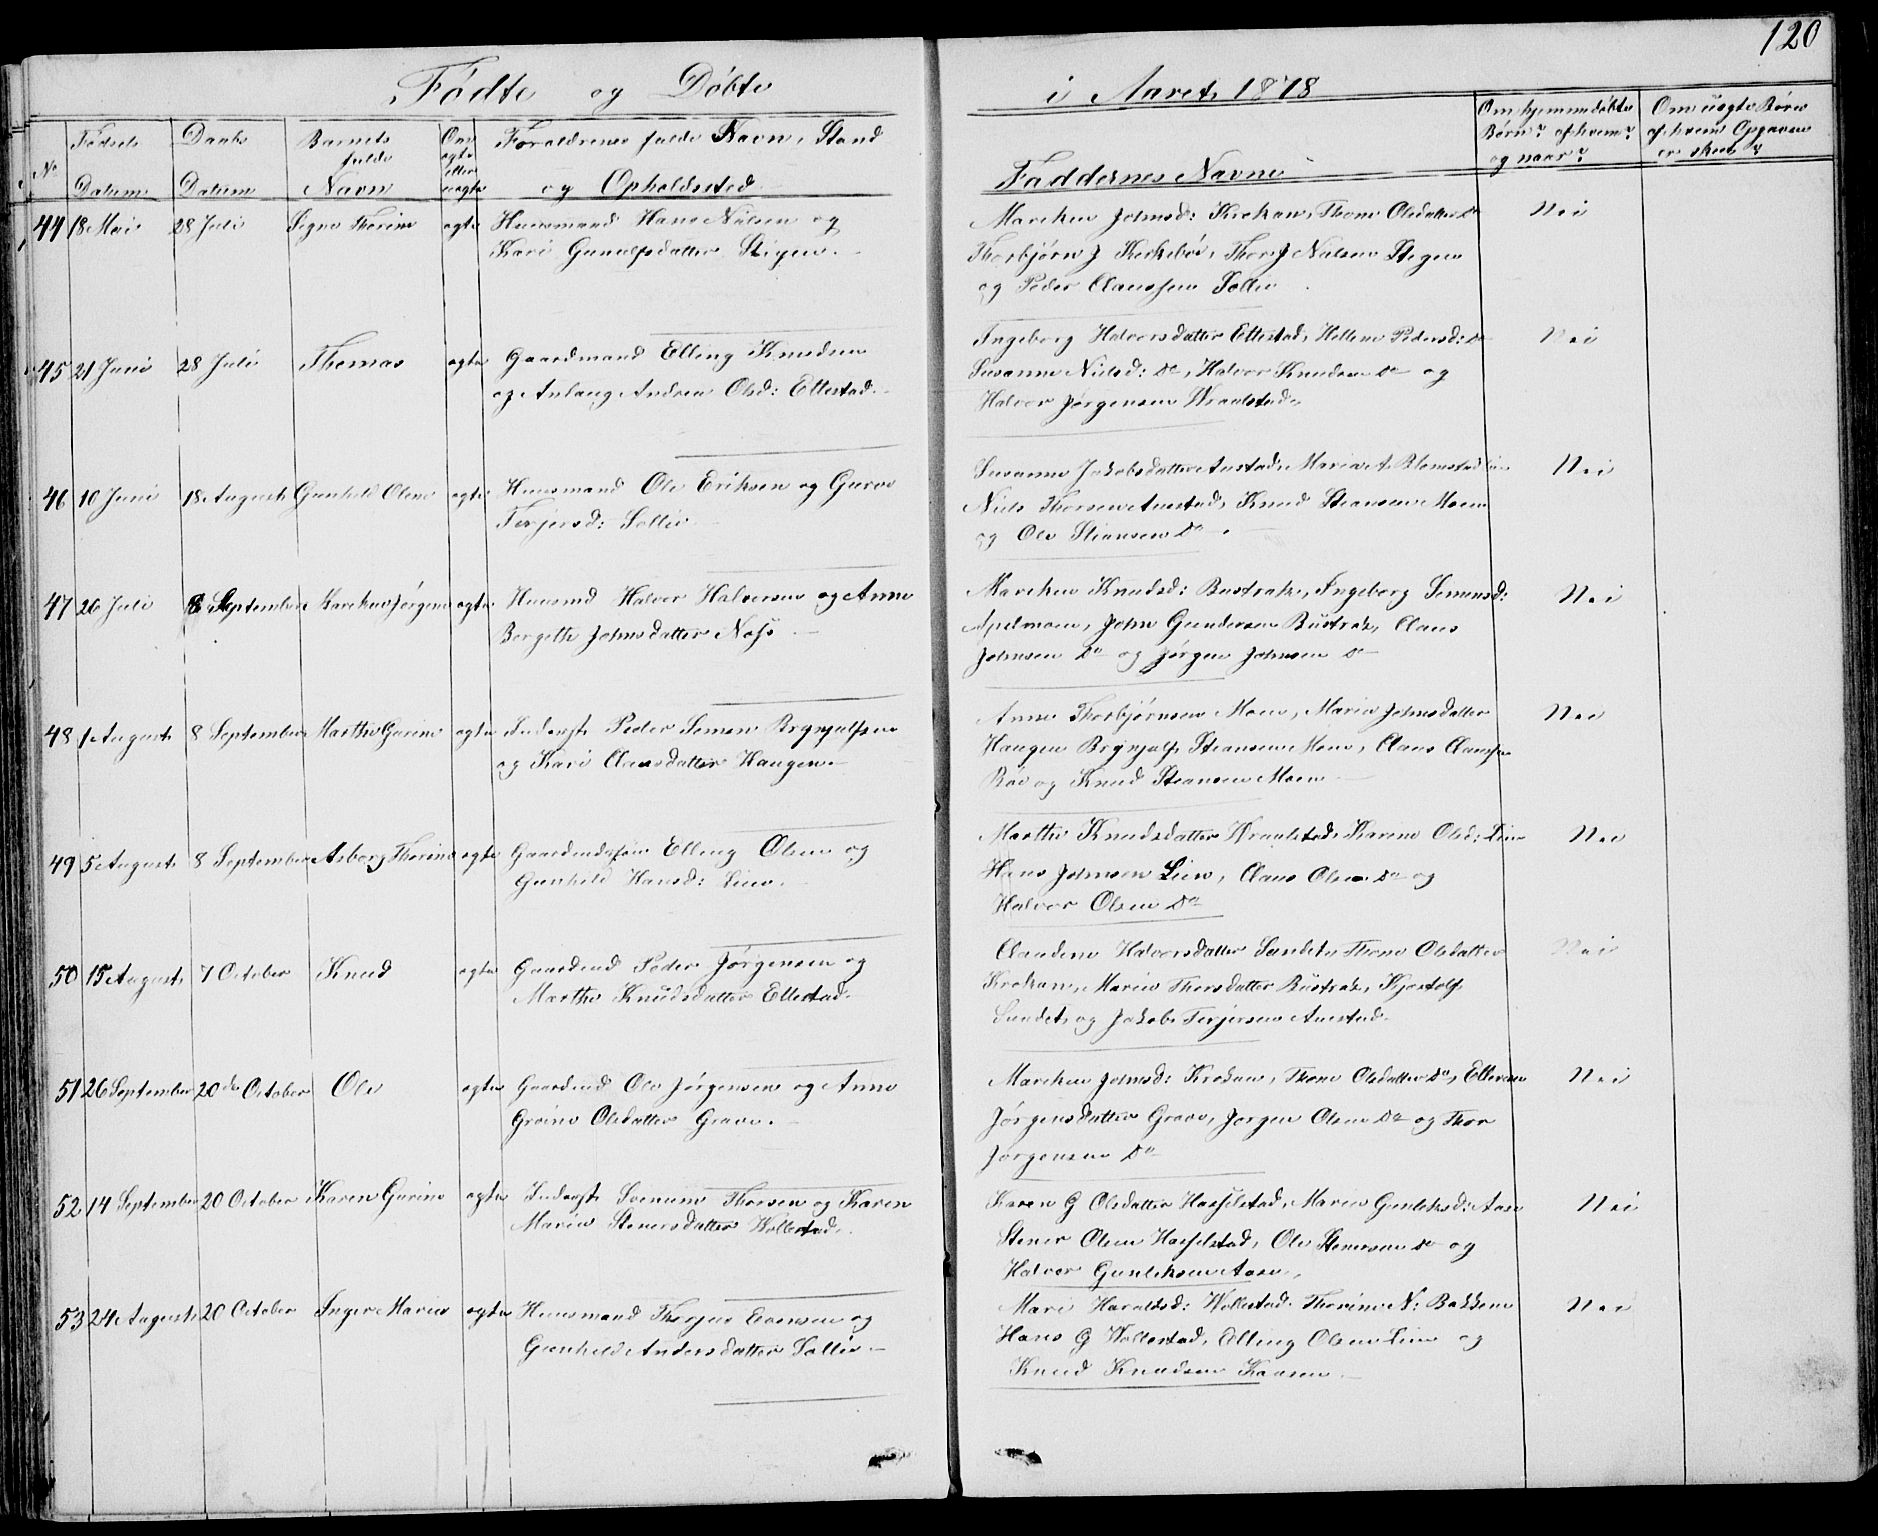 120
Fødte og Døbte i Aaret 1878
No
Fødsels Datum
Daabs Datum
Barnets fulde Navn
Om ægte eller uægte
Forældrenes fulde Navn, Stand og Opholdssted
Faddernes Navne
Om hjemmedøbte Børn? af hvem? og naar?
Om uægte Børn af hvem Opgaven er skeet?
44 18 Mai 28 Juli Signe Thorine ægte Huusmand Hans Nilsen og
Kari Gunulfsdatter Stigen.
Marehen Johnsd: Krokan, Thone Olsdatter Do
Thorbjørn J Kirkebøe, Thor J Nilsen Stigen
og Peder Claussen Sollie
Nei
45 21 Juni 28 Juli Thomas ægte Gaardmand Elling Knudsen
og Anlaug Andrea Olsd: Ellestad.
Ingeborg Halvorsdatter Ellestad, Hellene Pedersd: Do
Susanne Nielsd: Do, Halvor Knudsen Do og
Halvor Jørgensen Wraalstad.
Nei
46 10 Juni 18 August Gunhild Oline ægte Huusmand Ole Eriksen og Guroe
Terjersd: Sollie
Susanne Jakobsdatter Austad, Maria A Blomstad
Niels Thorsen Austad, Knud Steansen Moen
og Ole Steansen Do.
Nei
47 26 Juli 8 September Marehen Jørgine ægte Huusmd Halvor Halvorsen og Anne
Bergethe Johnsdatter Næss.
Marehen Knudsd: Bustrak, Ingeborg Semmsd:
Apelmoen, John Gundersen Bustrak, Claus
Johnsen Do og Jørgen Johnsen Do
Nei
48 1 August 8 September Marthe Gurine ægte Inderst Peder Semen Brynjulfsen
og Kari Clausdatter Haugen.
Anne Thorbjørnsen Moen, Maria Johnsdatter
Haugen Brynjulf Steansen Moen, Claus Claussen
Bøe og Knud Steansen Moen
Nei
49 5 August 8 September Asborg Thorine ægte Gaardmdssøn Elling Olsen og
Gunhild Hansd: Lien.
Marthe Knudsdatter Wraalstad, Karine Olsd: Lien
Hans Johnsen Lien, Claus Olsen Do og
Halvor Olsen Do
Nei
50 15 August 7 October Knud ægte Gaardmd Peder Jørgensen og
Marthe Knudsdatter Ellestad.
Claudine Halvorsdatter Sundet, Thone Olsdatter
Krokan, Maria Thorsdatter Bustrak, Kjøstolf
Sundet, og Jakob Terjersen Austad.
Nei
51 26 September 20de October Ole ægte Gaardmd Ole Jørgensen og Anne
Groine Olsdatter Grave.
Marehen Johnsd: Krokan, Thone Olsdatter Do, Ellevine
Jørgensdatter Grave, Jørgen Olsen Do og Thor
Jørgensen Do
Nei
52 14 September 20 October Karen Gurine ægte Inderst Svenum Thorsen og Karen
Maria Stenersdatter Wollestad.
Karen G Olsdatter Hasselstad, Maria Gunleksd: Aase
Stener Olsen Hasselstad, Ole Stenersen Do og
Halvor Gunleksen Aase,
Nei
53 24 August 20 October Inger Maria ægte Huusmand Therjus Evensen og
Gunhild Andersdatter Sollie.
Mari Haraldsd: Wollestad, Thorine N: Bakken
Hans G Wollestad, Elling Olsen Lien og
Knud Knudsen Kaasen
Nei